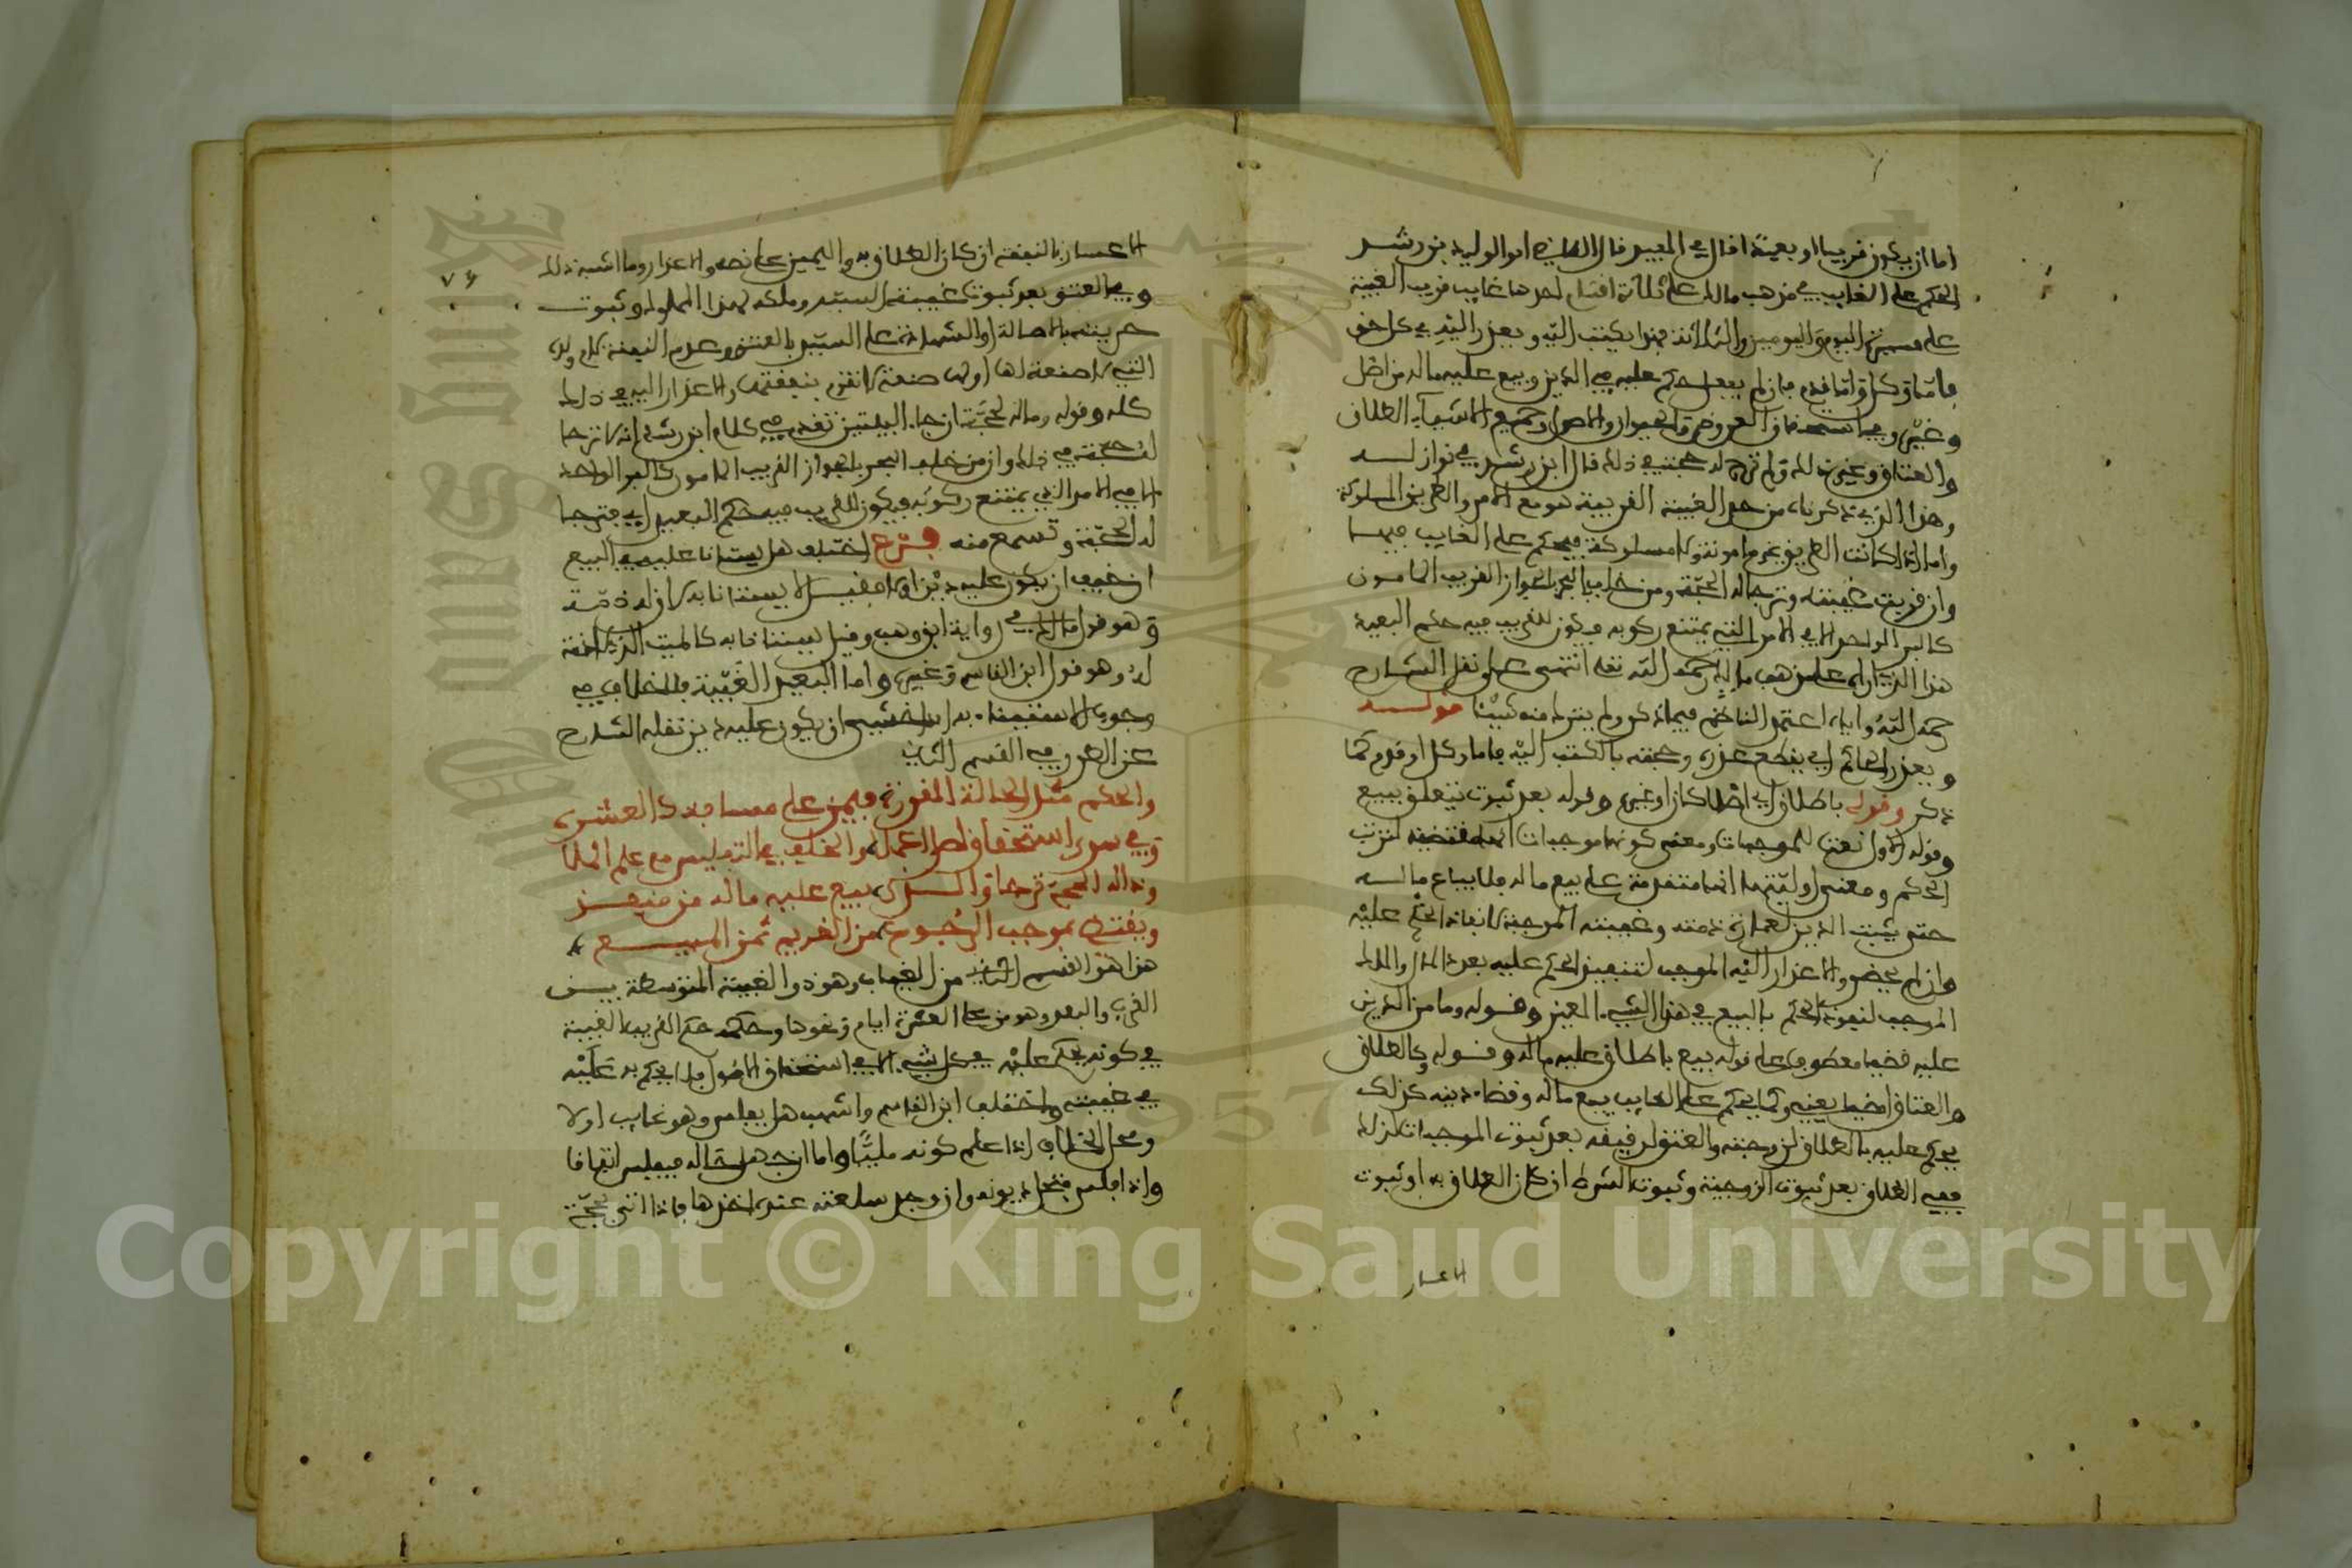 اما ان يكون قريبا او بعيدا قال في المفيد قال القاضي ابو الوليد بن رشد
الحكم على الغايب في مذهب مالك على ثلاثة اقسام احدها غايب قريب الغيبة
على مسيرة اليوم واليومين والثلاثة فهذا يكتب اليه ويعذر اليه في كل حق
فاما وكل واما قدم فان لم يفعل حكم عليه في الدين وبيع عليه ماله من اصل
وغيره وفي استحقاق العروض والحيوان والاصول وجميع الاشياء الطلاق
والعتاق وغير ذلك ولم ترج له حجة في ذلك قال ابن رشد في نوازله
وهذا الذي ذكرناه من حد الغيبة القريبة هو مع الامن والطريق المسلوكة
واما اذا كانت الطريق غير مامونة ولا مسلوكة فيحكم على الغايب فيها
وان قربت غيبته وترجا له الحجة ومن خلف البحر الجواز القريب المامون
كالبر الواحد الا في الامر الذي يمتنع ركوبه فيكون للقريب فيه حكم البعيد
هذا الذي اراه على مذهب مالك رحمه الله تعلى انتهى على نقل الشارح
رحمه الله واياه اعتمد الناظم فيما ذكر ولم يترك منه شيئا قوله
ويعذر الحاكم اي يقطع عذره وحجته بالكتب اليه فاما وكل او قدم كما
ذكر وقوله باطلاق اي اصلا كان او غيره وقوله بعد ثبوت يتعلق ببيع
وقوله الاول نعت للموجبات ومعنى كونها موجبات انها مقتضية لترتب
الحكم ومعنى اوليتها انها متقدمة على بيع ماله فلا يباع ماله
حتى يثبت الدين لعمارة ذمته وغيبته الموجبة لانفاذ الحكم عليه
وان لم يحضر والاعذار اليه الموجب لتنفيذ الحكم عليه بعد والملك
الموجب لنفوذ الحكم بالبيع في هذا الشيء المعين وقوله وما من الدين
عليه قضيا معطوف على قوله بيع باطلاق عليه ماله وقوله وكالطلاق
والعتاق امضيا يعني وكما يحكم على الغايب ببيع ماله وقضاء دينه كذلك
يحكم عليه بالطلاق لزوجته والعتق لرقيقه بعد ثبوت الموجبات كذلك
ففي الطلاق بعد ثبوت الزوجية وثبوت الشرط ان كان الطلاق به او ثبوت
الاعسار
٧٤
الاعسار بالنفقة ان كان الطلاق به واليمين على نصه والاعذار وما اشبه ذلك
وفي العتق بعد ثبوت غيبة السيد وملكه لهذا المملوك وثبوت
حريته بالاصالة او الشهادة على السيد بالعتق وعدم النفقة لام ولده
التي لا صنعة لها او لها صنعة لا تقوم بنفقتها والاعذار اليه في ذلك
كله وقوله وماله لحجة ارجا البيتين تقدم في كلام ابن رشد انه لا ترجا
له حجة في ذلك وان من خلف البحر بالجواز القريب المامون كالبر الواحد
الا في الامر الذي يمتنع ركوبه فيكون للقريب فيه حكم البعيد اي فترجا
له الحجة وتسمع منه فرع اختلف هل يستانا عليه في البيع
ان خيف ان يكون عليه دين او لا فقيل لا يستانا به لان له ذمة
وهو قول مالك في رواية ابن وهب وقيل يستانا به كالميت الذي لا ذمة
له وهو قول ابن القاسم وغيره واما البعيد الغيبة فلا خلاف في
وجوب الاستيناء به اذا خشي ان يكون عليه دين نقله الشارح
عن الطرر في القسم الثاني
والحكم مثل الحالة المقررة فيمن على مسافة كالعشره
وفي سوى استحقاق اصل اعملا والخلف في التفليس مع علم الملا
وذا له الحجة ترجا والذي بيع عليه ماله من منقذ
ويقتضي بموجب الرجوع من الغريم ثمن المبيع
هذا هو القسم الثاني من الغياب وهو ذو الغيبة المتوسطة بين
القرب والبعد وهو من على العشرة ايام ونحوها وحكمه حكم القريب الغيبة
في كونه يحكم عليه في كل شيء الا في استحقاق الاصول فلا يحكم به عليه
في غيبته واختلف ابن القاسم واشهب هل يفلس وهو غايب او لا
ومحل الخلاف اذا علم كونه مليا واما ان جهل حاله فيفلس اتفاقا
واذا فلس فتحل ديونه وان وجد سلعته عنده اخذها فاذا اتى بحجة